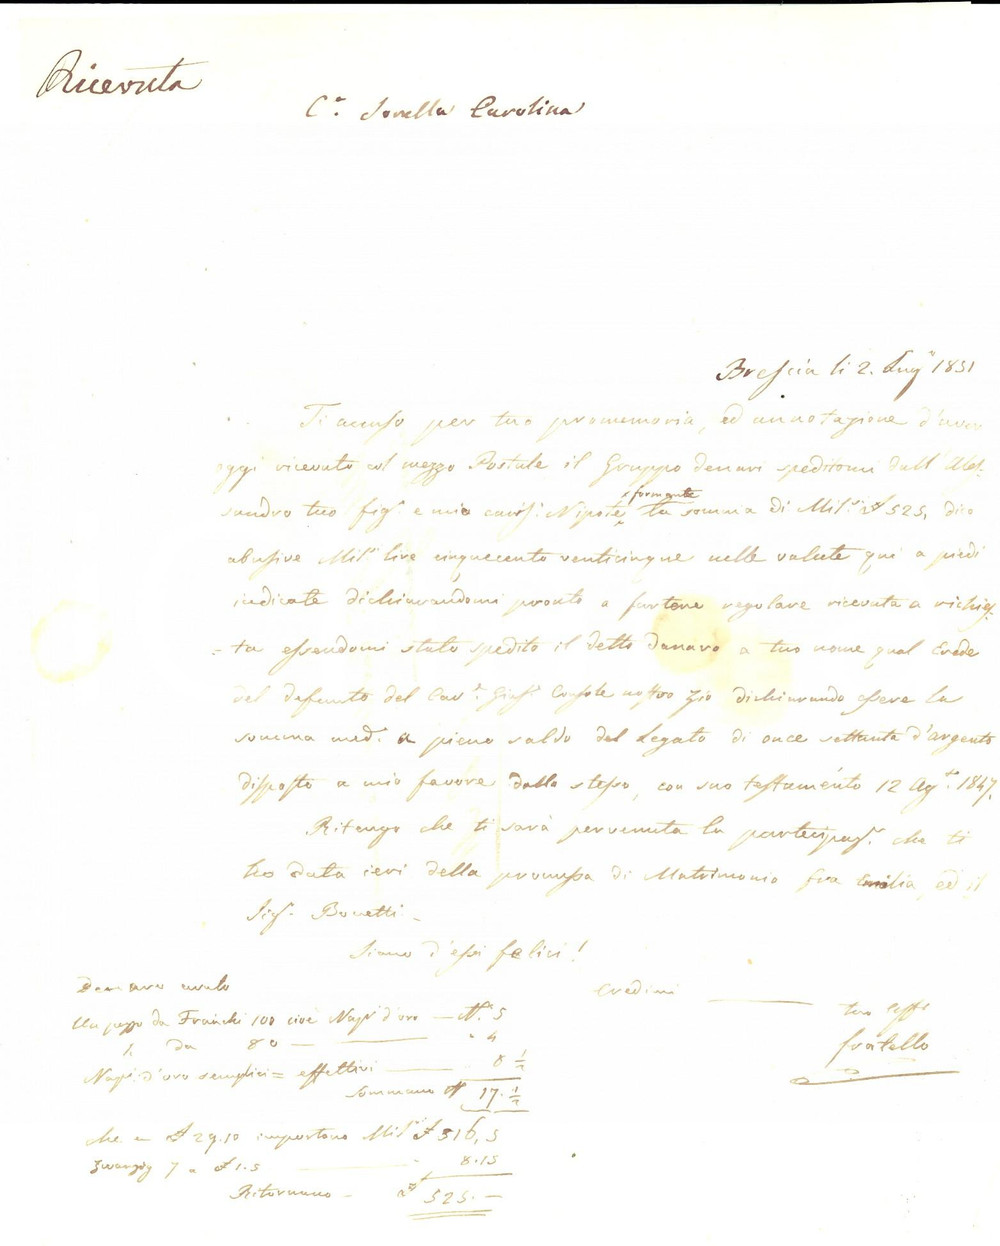 Ricevuta
C.ª Sorella Carolina
Brescia li 2. Lug.º 1851
Ti accuso per tuo promemoria, ed annotazione d'aver
oggi ricevuto col mezzo Postale il Gruppo denari speditomi dall' Ales-
sandro tuo fig.º e mio cariss.º Nipote formante la somma di Mil.i £ 525, dico
abusive Mil.i lire cinquecento venticinque nelle valute qui a piedi
indicate dichiarandomi pronto a fartene regolare ricevuta a richies-
=ta essendomi stato spedito il detto danaro a tuo nome qual Erede
del defunto del Cav.r Gius.e nostro Zio dichiarando essere la
somma med.ª a pieno saldo del Legato di once settanta d'argento
disposto a mio favore dallo stesso, con suo testamento 12 Ag.to 1847.
Ritengo che ti sarà pervenuta la partecipaz.e che ti
ho data ieri della promessa di Matrimonio fra Emilia, ed il
Sig.r Bonetti.
Siano d'essi felici!
Credimi
tuo aff.
fratello
Denaro avuto
Un pezzo da Franchi 100 cioè Nap.i d'oro — N.º 5
1. da 80 — " 4
Nap.i d'oro semplici = effettivi — 8 1/2
Sommano N.º 17. 1/2
che a £ 29.10 importano Mil.i £ 516,5
Zwanzig 7 a £ 1.5 — 8.15
Ritornano — £ 525. —